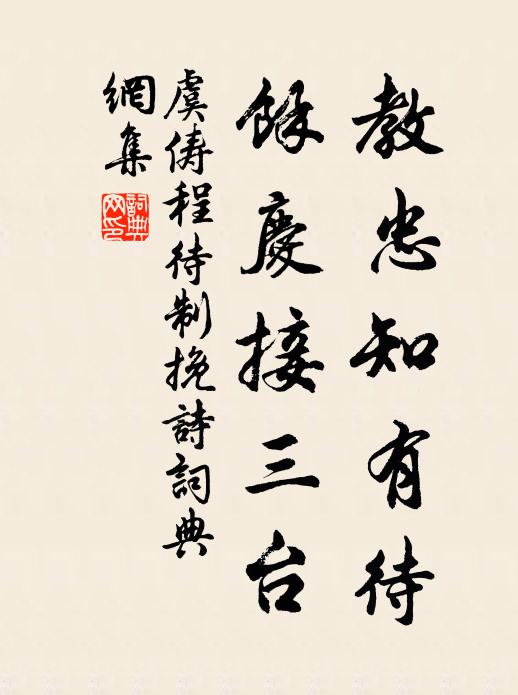 教忠知有待
餘慶接三台
虞俦程待制挽詩詞典
網集
詞典
网印